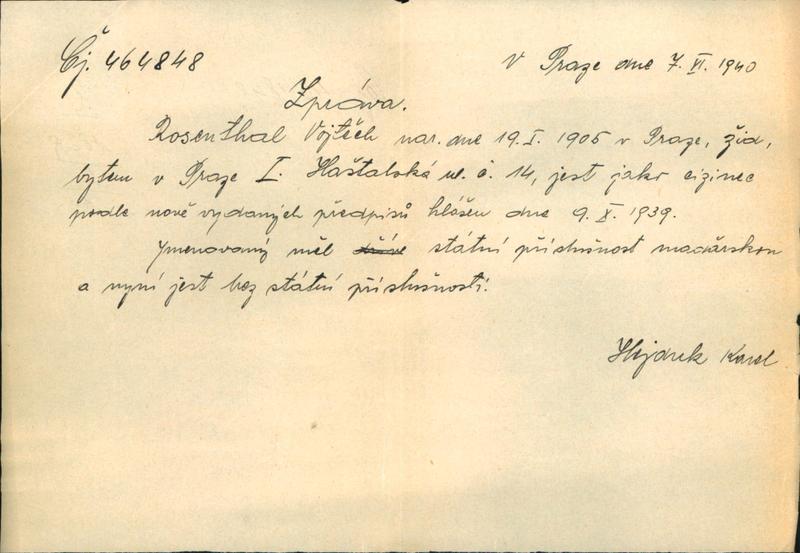 Čj. 464848
V Praze dne 7. VI. 1940
Zpráva.
Rosenthal Vojtěch nar. dne 19. I. 1905 v Praze, žid,
bytem v Praze I. Haštalská ul. č. 14, jest jako cizinec
podle nově vydaných předpisů hlášen dne 9. X. 1939.
Jmenovaný měl dříve státní příslušnost maďarskou
a nyní jest bez státní příslušnosti.
Karel